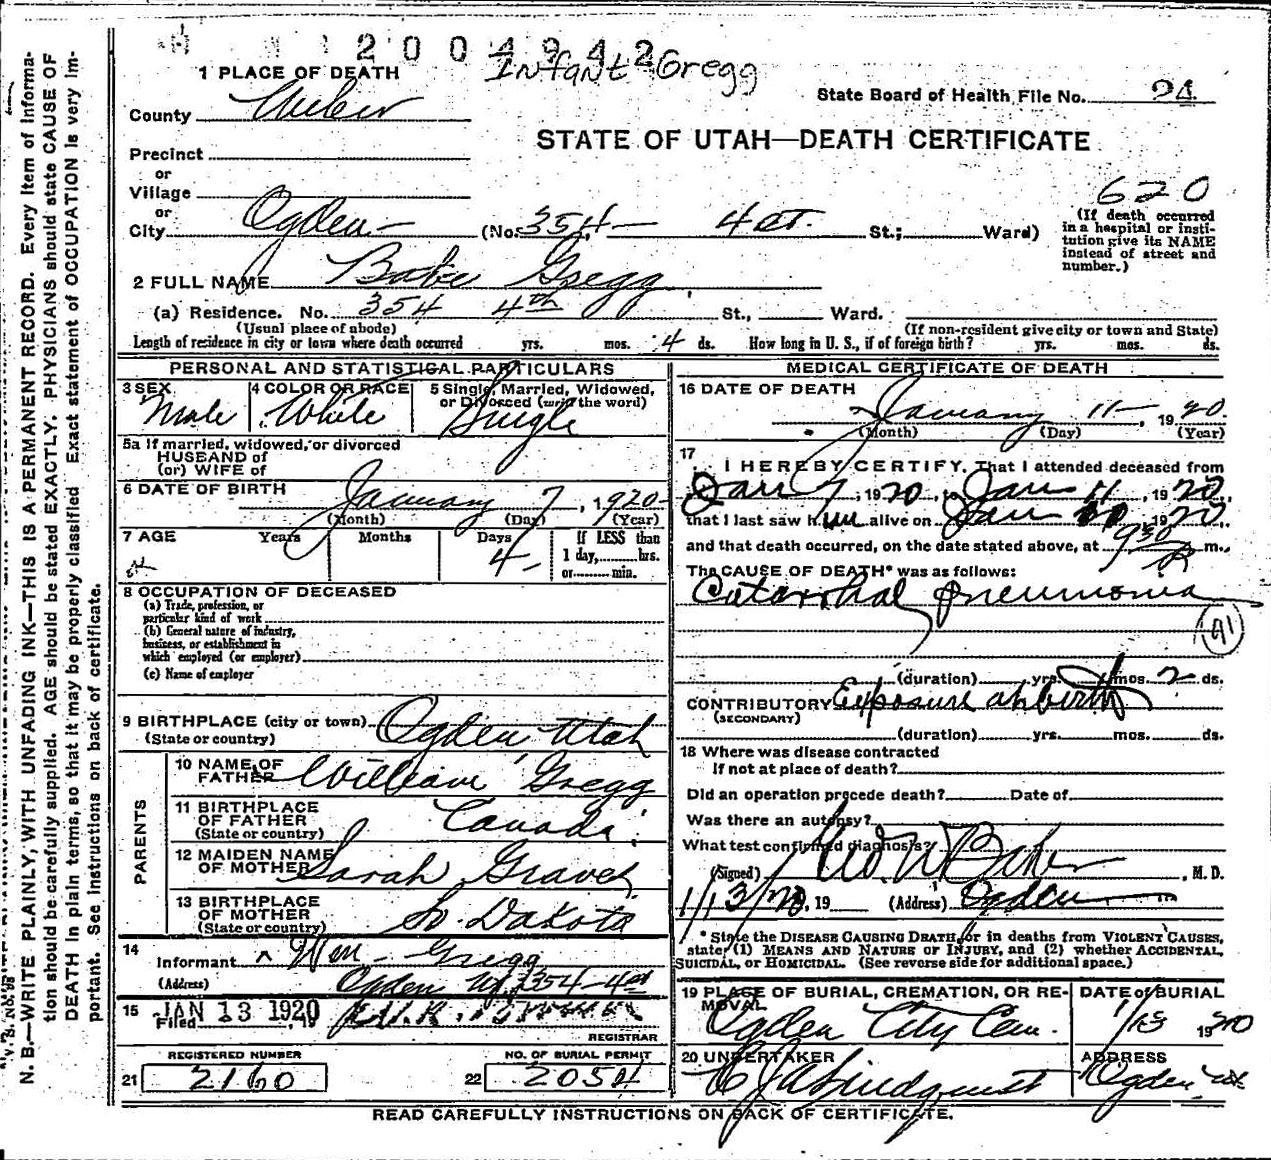 2004942
Infant Gregg
1 PLACE OF DEATH
State Board of Health File No. 24
County Weber
STATE OF UTAH—DEATH CERTIFICATE
Precinct
or
Village
620
or
City Ogden — (No. 354 — 4 St. St.; Ward)
(If death occurred in a hospital or institution give its NAME instead of street and number.)
2 FULL NAME Baby Gregg
(a) Residence. No. 354 4th St., Ward.
(Usual place of abode) (If non-resident give city or town and State)
Length of residence in city or town where death occurred yrs. mos. 4 ds. How long in U. S., if of foreign birth? yrs. mos. ds.
PERSONAL AND STATISTICAL PARTICULARS
3 SEX Male
4 COLOR OR RACE White
5 Single, Married, Widowed, or Divorced (write the word) Single
5a If married, widowed, or divorced
HUSBAND of
(or) WIFE of
6 DATE OF BIRTH January 7, 1920
(Month) (Day) (Year)
7 AGE Years Months Days 4 If LESS than
1 day, hrs.
or min.
8 OCCUPATION OF DECEASED
(a) Trade, profession, or
particular kind of work
(b) General nature of industry,
business, or establishment in
which employed (or employer)
(c) Name of employer
9 BIRTHPLACE (city or town) Ogden Utah
(State or country)
PARENTS
10 NAME OF FATHER William Gregg
11 BIRTHPLACE OF FATHER Canada
(State or country)
12 MAIDEN NAME OF MOTHER Sarah Graves
13 BIRTHPLACE OF MOTHER So. Dakota
(State or country)
14 Informant Wm Gregg
(Address) Ogden 354-4 st
15 Filed JAN 13 1920, 19
REGISTRAR
REGISTERED NUMBER NO. OF BURIAL PERMIT
21 2160 22 2054
MEDICAL CERTIFICATE OF DEATH
16 DATE OF DEATH January 11 — , 1920.
(Month) (Day) (Year)
17 I HEREBY CERTIFY, That I attended deceased from
Jan 7, 1920, to Jan 11, 1920,
that I last saw him alive on Jan 1920,
and that death occurred, on the date stated above, at 9 30 P m.
The CAUSE OF DEATH* was as follows:
Catarrhal pneumonia
91
(duration) yrs. mos. 2 ds.
CONTRIBUTORY Exposure at birth
(SECONDARY)
(duration) yrs. mos. ds.
18 Where was disease contracted
If not at place of death?
Did an operation precede death? Date of
Was there an autopsy?
What test confirmed diagnosis?
(Signed) Geo W Baker, M. D.
1/13/20, 19 (Address) Ogden
* State the DISEASE CAUSING DEATH, or in deaths from VIOLENT CAUSES,
state (1) MEANS AND NATURE OF INJURY, and (2) whether ACCIDENTAL,
SUICIDAL, or HOMICIDAL. (See reverse side for additional space.)
19 PLACE OF BURIAL, CREMATION, OR REMOVAL Ogden City Cem.
DATE of BURIAL 1/13 1920
20 UNDERTAKER C J A Lindquist
ADDRESS Ogden
READ CAREFULLY INSTRUCTIONS ON BACK OF CERTIFICATE.
N. B.—WRITE PLAINLY, WITH UNFADING INK—THIS IS A PERMANENT RECORD. Every item of information should be carefully supplied. AGE should be stated EXACTLY. PHYSICIANS should state CAUSE OF DEATH in plain terms, so that it may be properly classified. Exact statement of OCCUPATION is very important. See instructions on back of certificate.